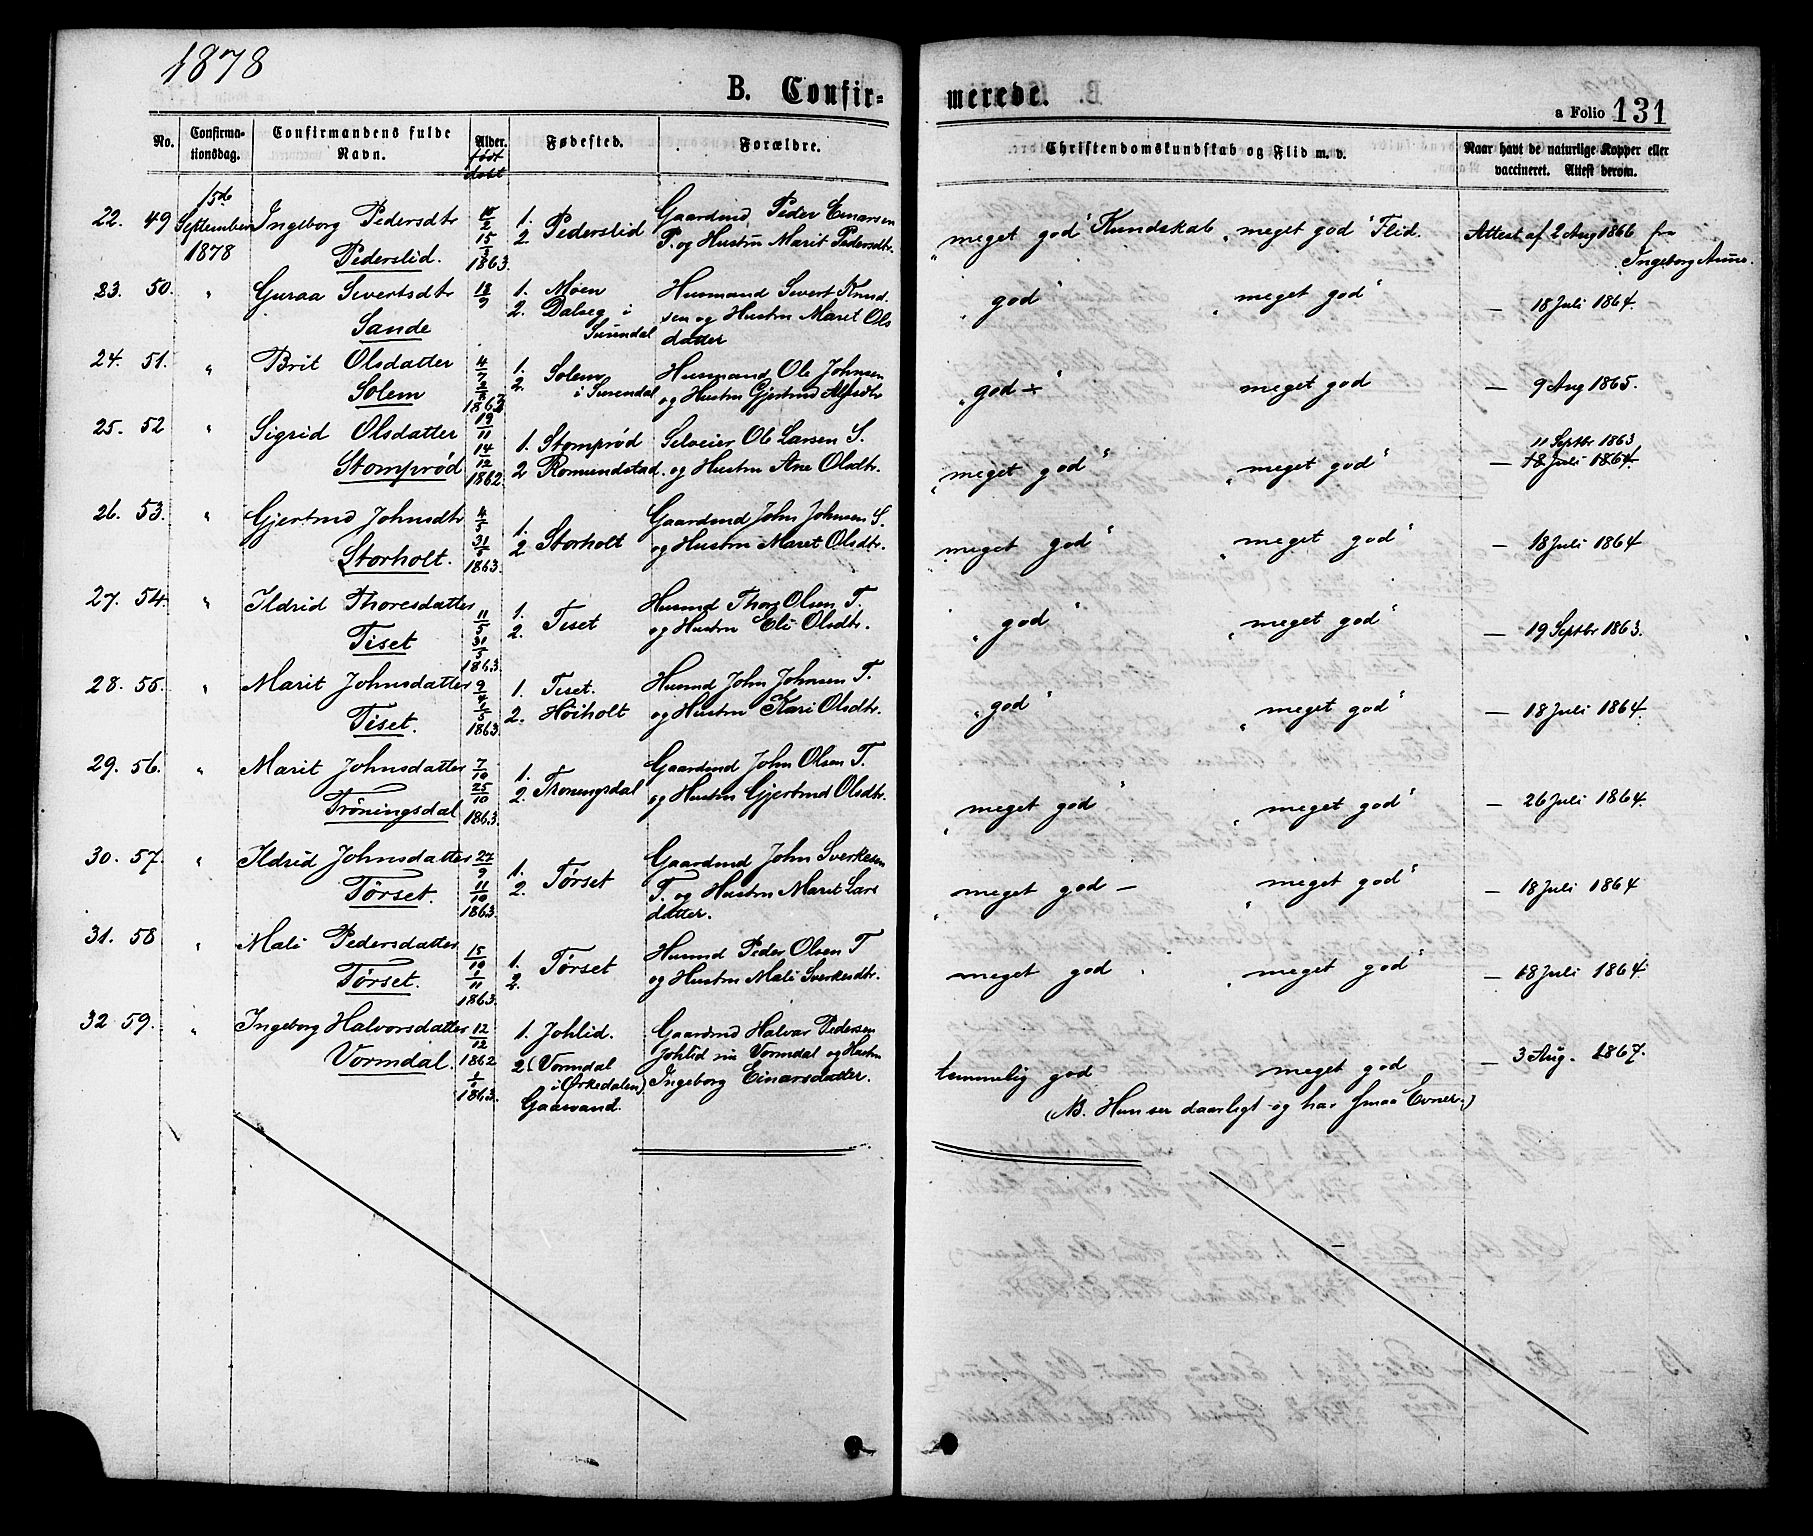 1878
B. Confirmerede.
a Folio 131
No.
Confirmationsdag.
Confirmandens fulde Navn.
Alder. født døbt
Fødested.
Forældre.
Christendomskundskab og Flid m. v.
Naar havt de naturlige Kopper eller vaccineret. Attest derom.
22. 49 15de September 1878 Ingeborg Pedersdtr Pederslid. 1863. 1. 2 Pederslid Gaardmd Peder Einarsen P. og Hustru Marit Pedersdtr. "meget god" Kundskab "meget god" Flid. Attest af 2 Aug 1866 fra Ingeborg Aune.
23. 50. " Guraa Sivertsdtr Sande 18/9 1. Moen 2. Dalseg i Surendal Husmand Sivert Knudsen og Hustru Maret Olsdatter "god" "meget god" — 18 Juli 1864.
24. 51. " Brit Olsdatter Solem 4/7 1. 2. Solem i Surendal Husmand Ole Johnsen og Hustru Gjertrud "god +" meget god — 9 Aug 1865.
25. 52 " Sigrid Olsdatter Stomprød 19/11 14/12 1862. 1. Stomprød 2 Romundstad Selveier Ole Larsen S. og Hustru Ane Olsdtr. "meget god" "meget god" 11 Septbr 1863 — 18 Juli 1864.
26. 53. " Gjertrud Johnsdtr Storholt. 4/5 1863. 1. 2 Storholt Gaardmd John Johnsen S. og Hustru Maret Olsdtr. "meget god" "meget god" — 18 Juli 1864
27. 54. " Ildrid Thoresdatter Tiset 11/5 31/5 1863. 1. 2. Tiset Husmd Thore Olsen T. og Hustru Eli Olsdtr. "god" "meget god" — 19 Septbr 1863.
28. 55. " Marit Johnsdatter Tiset. 9/4 1863. 1. Tiset. 2. Høiholt Husmd John Johnsen T. og Hustru Kari Olsdtr. "god" "meget god" — 18 Juli 1864.
29. 56. " Marit Johnsdatter Trøningsdal 7/10 25/10 1863. 1. 2. Trøningsdal Gaardmd John Olsen T. og Hustru Gjertrud Olsdtr. "meget god" "meget god" — 26 Juli 1864.
30. 57. " Ildrid Johnsdatter Tørset. 27/9 11/10 1863. 1. 2. Tørset Gaardmd John Sverkesen T. og Hustru Marit Larsdatter. "meget god — "meget god" — 18 Juli 1864
31. 58 " Mali Pedersdatter Tørset. 15/10 1/11 1863. 1. 2. Tørset Husmd Peder Olsen T og Hustru Mali Sverkesdtr. meget god "meget god" — 18 Juli 1864.
32 59. " Ingeborg Halvorsdatter Vormdal. 12/12 1862 1863. 1. Johlid. 2 (Vormdal i Ørkedalen) Gaasvand. Gaardmd Halvar Pedersen Johlid nu Vormdal og Hustru Ingeborg Einarsdatter. temmelig god meget god — 3 Aug. 1867.
(NB. Hun ser daarligt og har smaa Evner.)